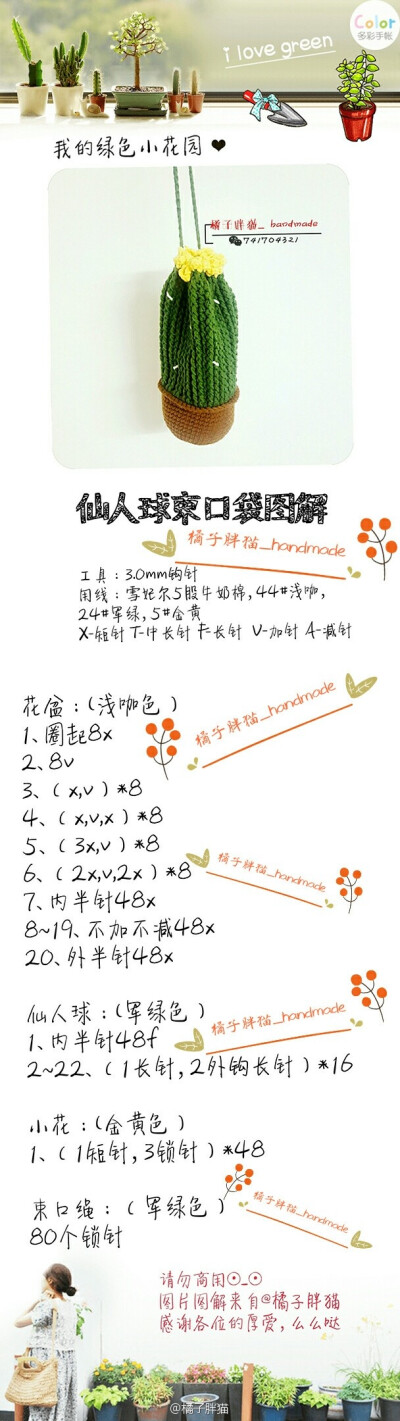 Color
多彩手帐
i love green
我的绿色小花园❤
橘子胖猫_handmade
741704321
仙人球束口袋图解
橘子胖猫_handmade
工具:3.0mm钩针
用线:雪妃尔5股牛奶棉,44#浅咖,
24#军绿,5#金黄
X-短针 T-中长针 F-长针 V-加针 A-减针
橘子胖猫_handmade
花盆:(浅咖色)
1、圈起8x
2、8v
3、(x,v)*8
4、(x,v,x)*8
5、(3x,v)*8
橘子胖猫_handmade
6、(2x,v,2x)*8
7、内半针48x
8~19、不加不减48x
20、外半针48x
仙人球:(军绿色)
橘子胖猫_handmade
1、内半针48f
2~22、(1长针,2外钩长针)*16
小花:(金黄色)
1、(1短针,3锁针)*48
束口绳:(军绿色)
橘子胖猫_handmade
80个锁针
请勿商用⊙_⊙
图片图解来自@橘子胖猫
感谢各位的厚爱,么么哒
@橘子胖猫